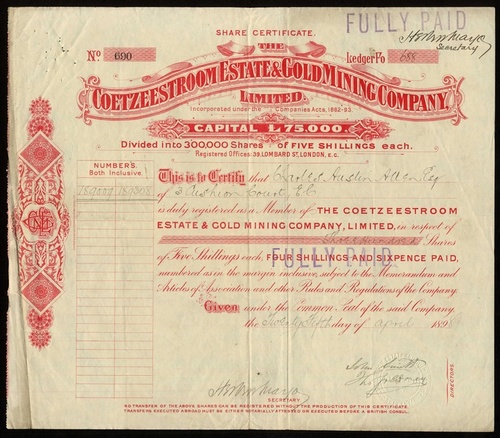 SHARE CERTIFICATE.
FULLY PAID
Secretary
No 690
THE
Ledger Fo 688
COETZEESTROOM ESTATE & GOLD MINING COMPANY,
LIMITED.
Incorporated under the Companies Acts, 1862-93.
CAPITAL £75,000
Divided into 300,000 Shares of FIVE SHILLINGS each.
Registered Offices: 39, LOMBARD ST, LONDON, E.C.
NUMBERS.
Both Inclusive.
This is to Certify that Charles Austin Allen Esq
of 3 Cushion Court, E.C.
is duly registered as a Member of THE COETZEESTROOM
ESTATE & GOLD MINING COMPANY, LIMITED, in respect of
Three Hundred Shares
of Five Shillings each, FOUR SHILLINGS AND SIXPENCE PAID,
FULLY PAID.
numbered as in the margin inclusive, subject to the Memorandum and
Articles of Association and other Rules and Regulations of the Company.
Given under the Common Seal of the said Company
the Twenty Fifth day of April 189
DIRECTORS
SECRETARY
NO TRANSFER OF THE ABOVE SHARES CAN BE REGISTERED WITHOUT THE PRODUCTION OF THIS CERTIFICATE.
TRANSFERS EXECUTED ABROAD MUST BE EITHER NOTARIALLY ATTESTED OR EXECUTED BEFORE A BRITISH CONSUL.